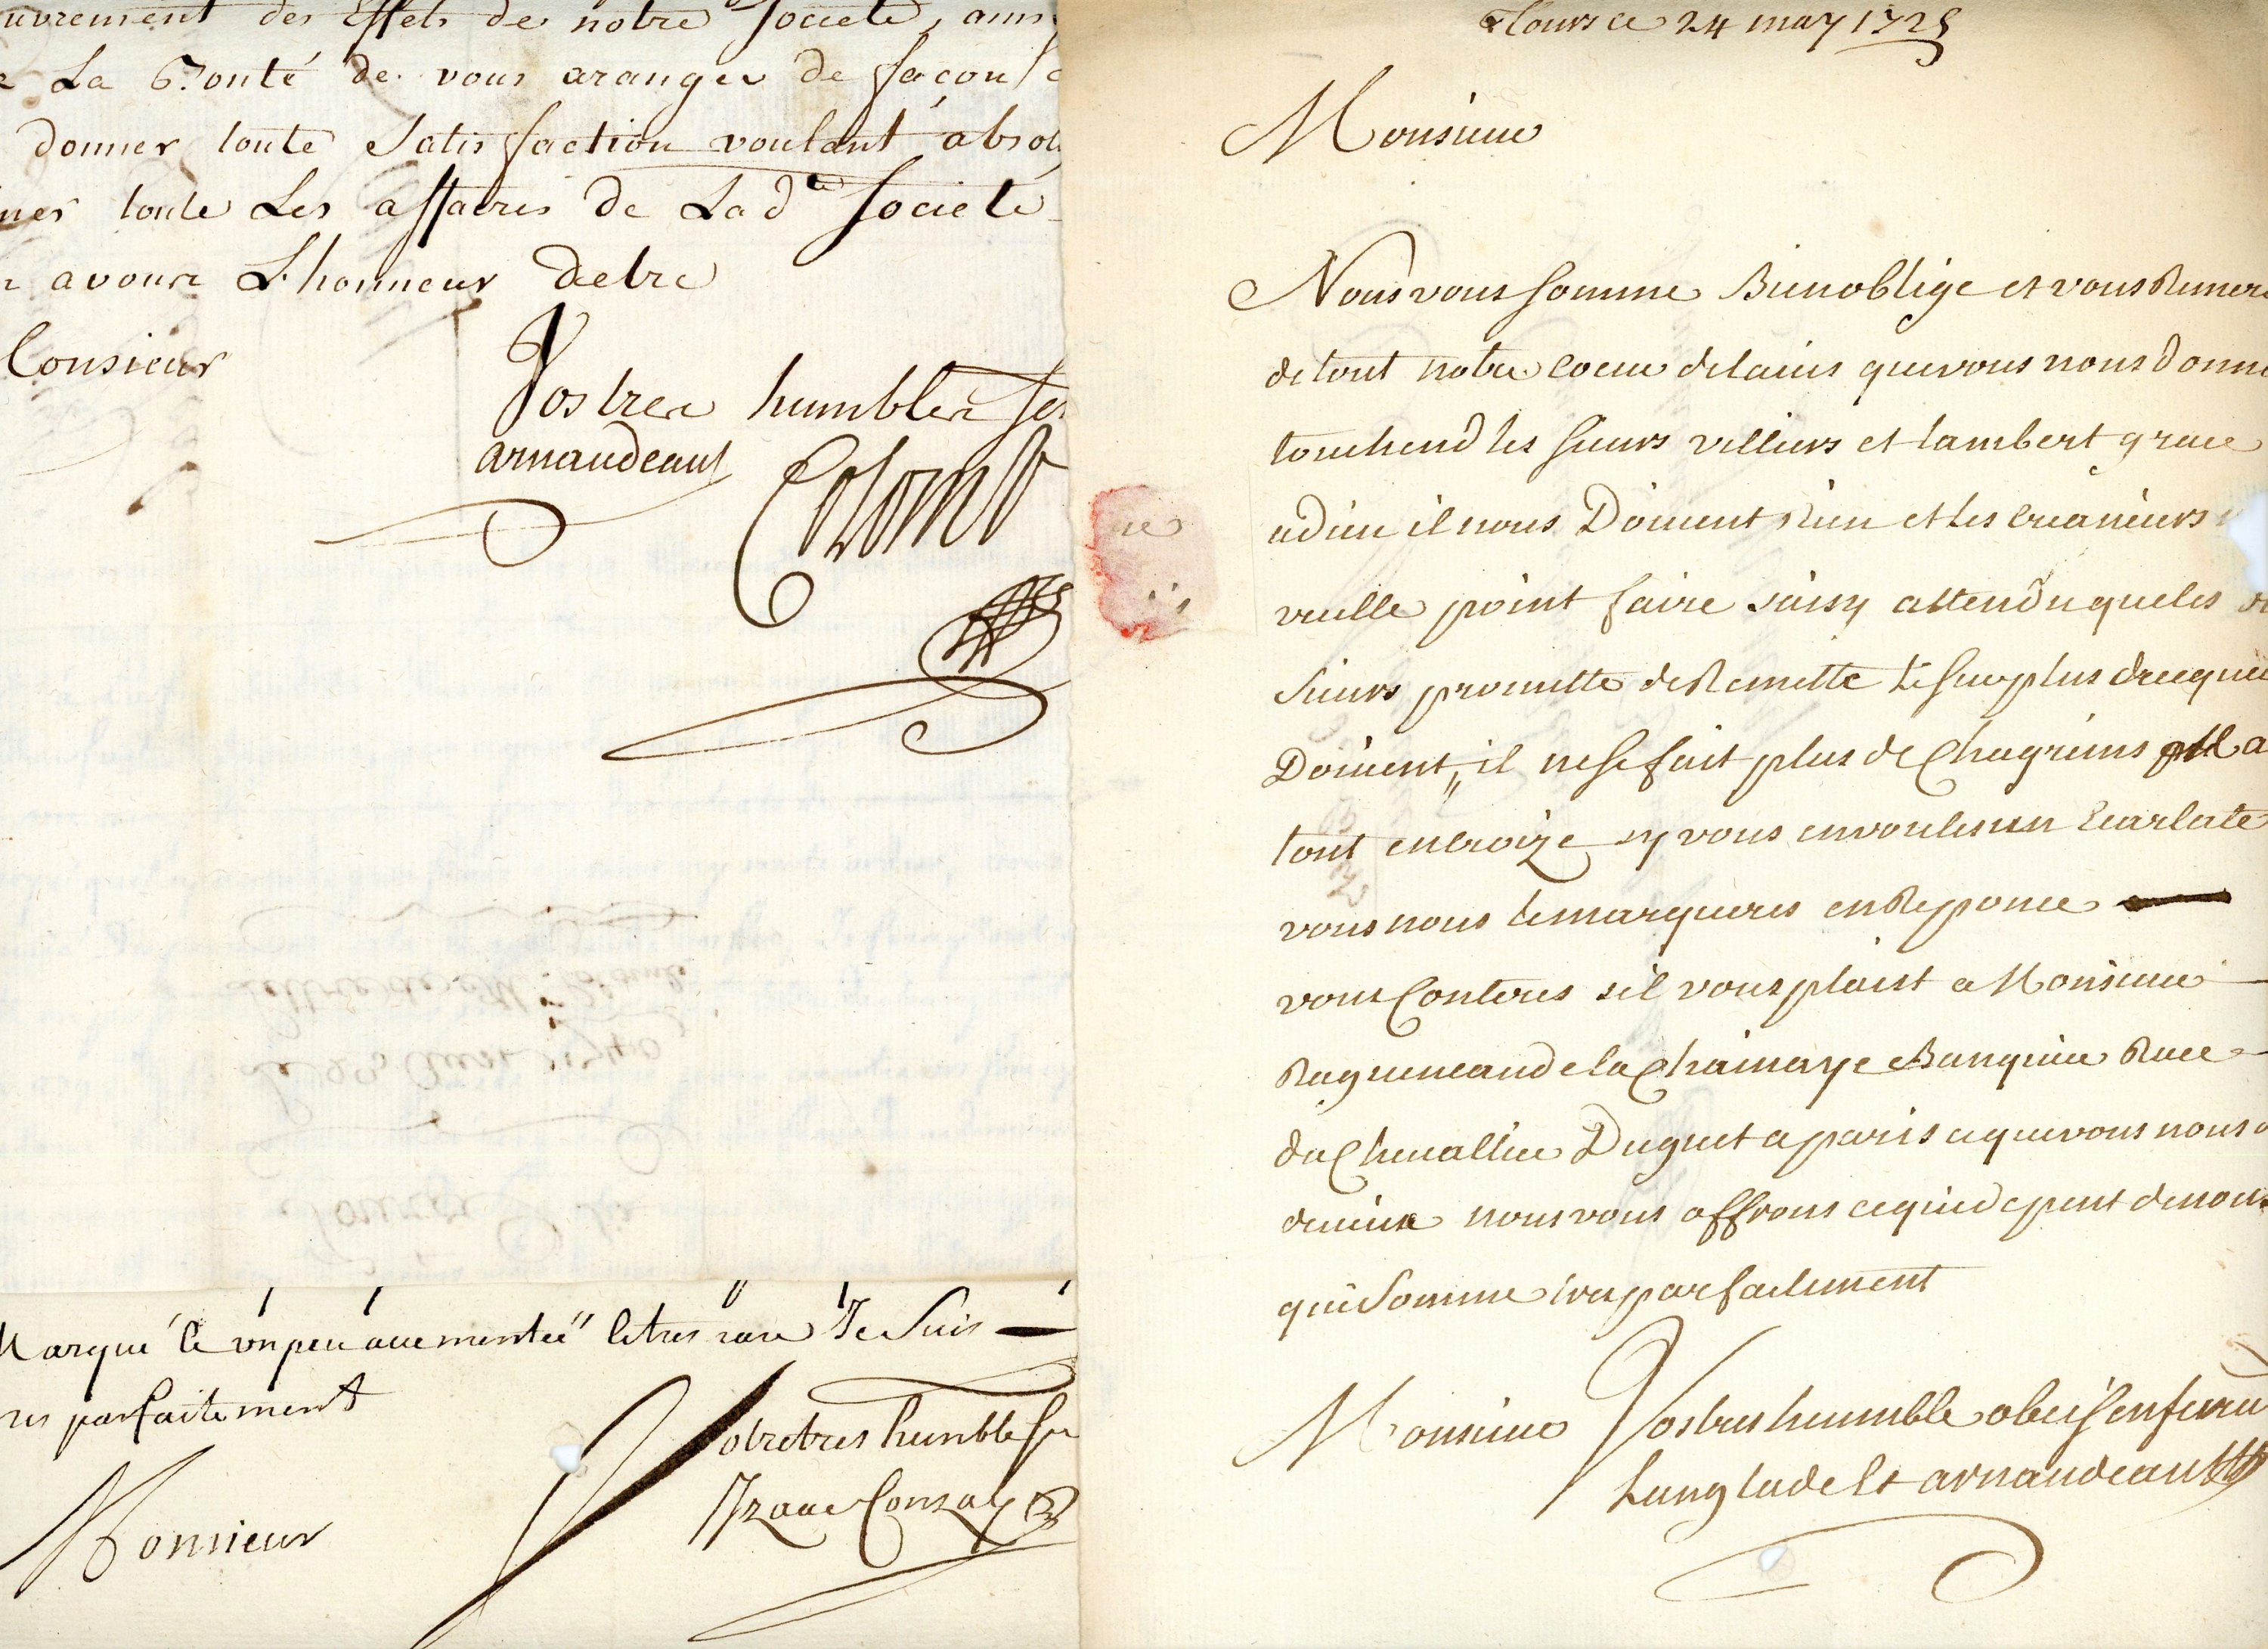 uvrement des Effets de notre Societé, ains
La Bonté de vous aranger de façon
donner toute Satisfaction voulant absol
ner toute Les affaires de Lad.te Societé
avoir L'honneur detre
Monsieur
Vostre humble ser
arnaudeau
Colomb
Marqué le un peu aucmentée" letres rare Je Suis
res parfaitement
Monsieur
Votre tres humble Se
Izaac Conzay
Tours ce 24 may 1728
Monsieur
Nous vous somme Bien oblige et vous Remer
de tout notre coeur de lavis que vous nous donne
touchend les sieurs villiers et lambert grace
a dieu il nous Doivent Rien et les creanciers
veulle point faire saisy attendu que les
sieurs promette de Remette le surplus de ce que
Doivent,, il ne se fait plus de Chagrins a
tout en croize sy vous en voules un Ecarlate
vous nous le marqueres en Reponce
vous Conteres sil vous plaist a Monsieur
Ragueneau de la Chainaye Banquier Rue
du Chevallier Duguet a paris ce que vous nous
deveire nous vous offrons ce qui depent de nous
qui Somme tres parfaitement
Monsieur Vostres humble obeisen servi
Langlade Et arnaudeau